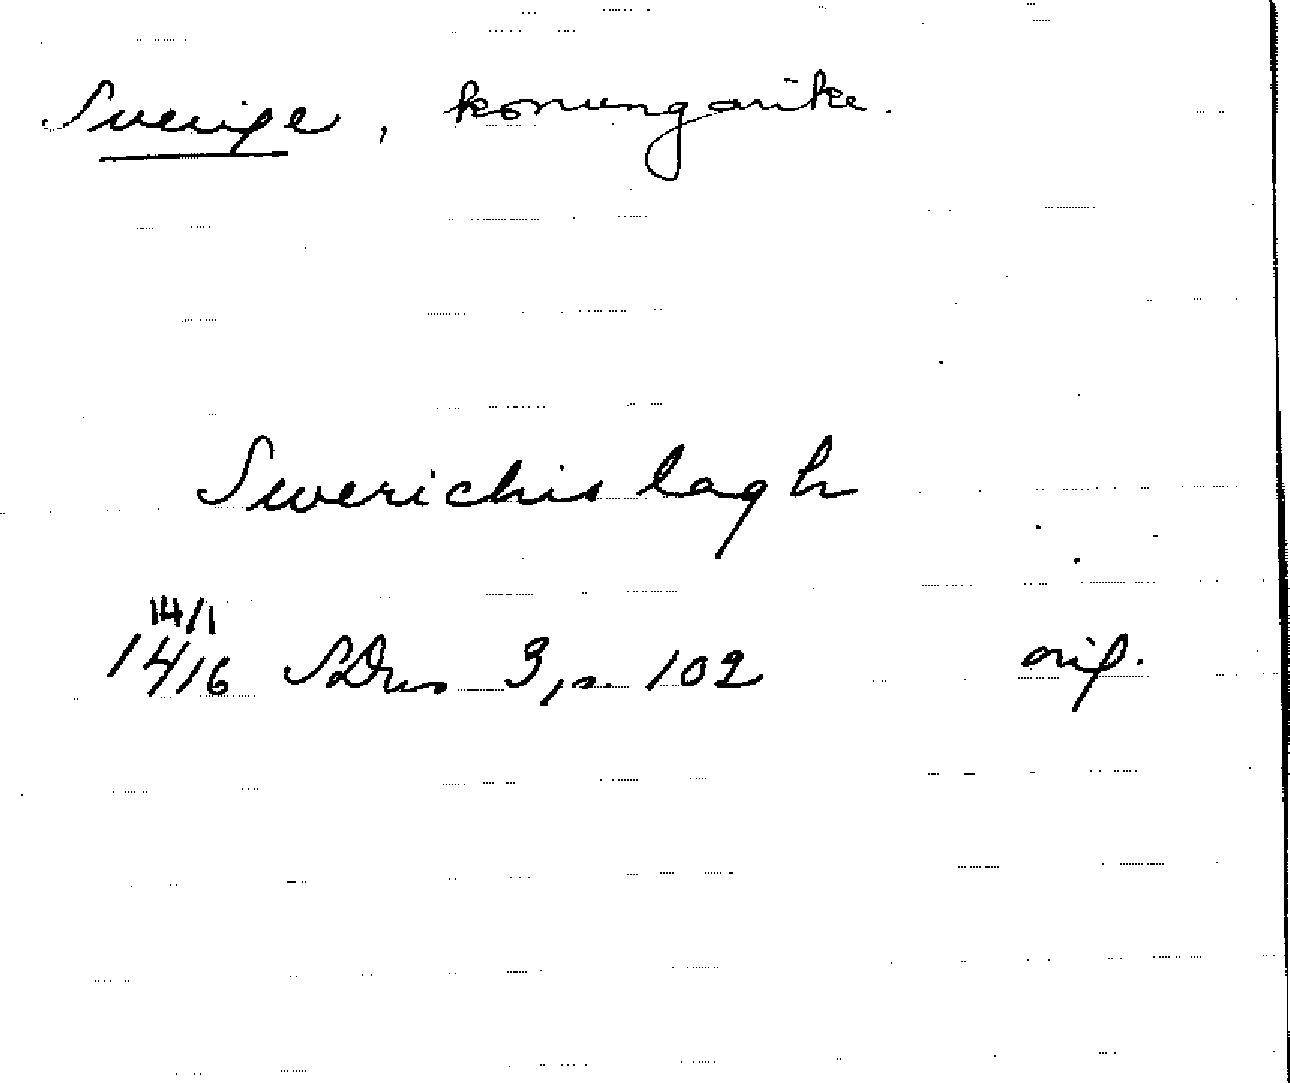 Sverige, konungarike.
Swerichis lagh
14/1
1416 SDns 3, s. 102 orig.